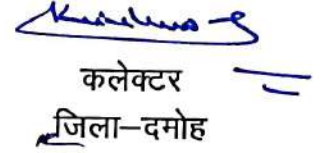 कलेक्टर
जिला–दमोह